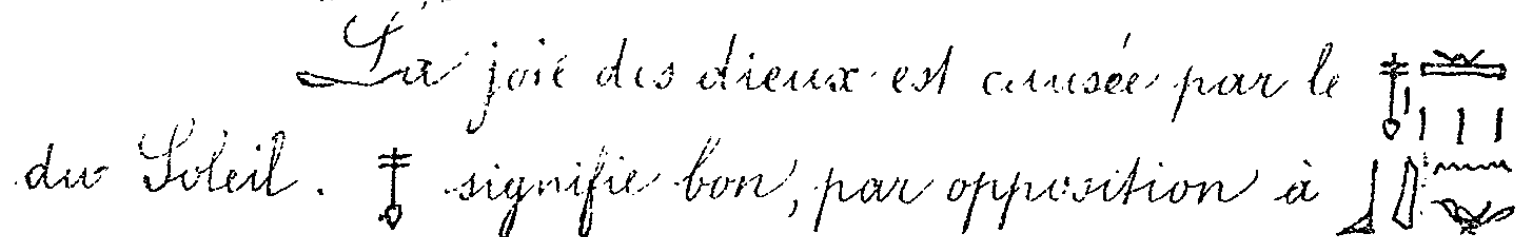 La joie des dieux est causée par le
du Soleil. 𓄤 signifie bon, par opposition à